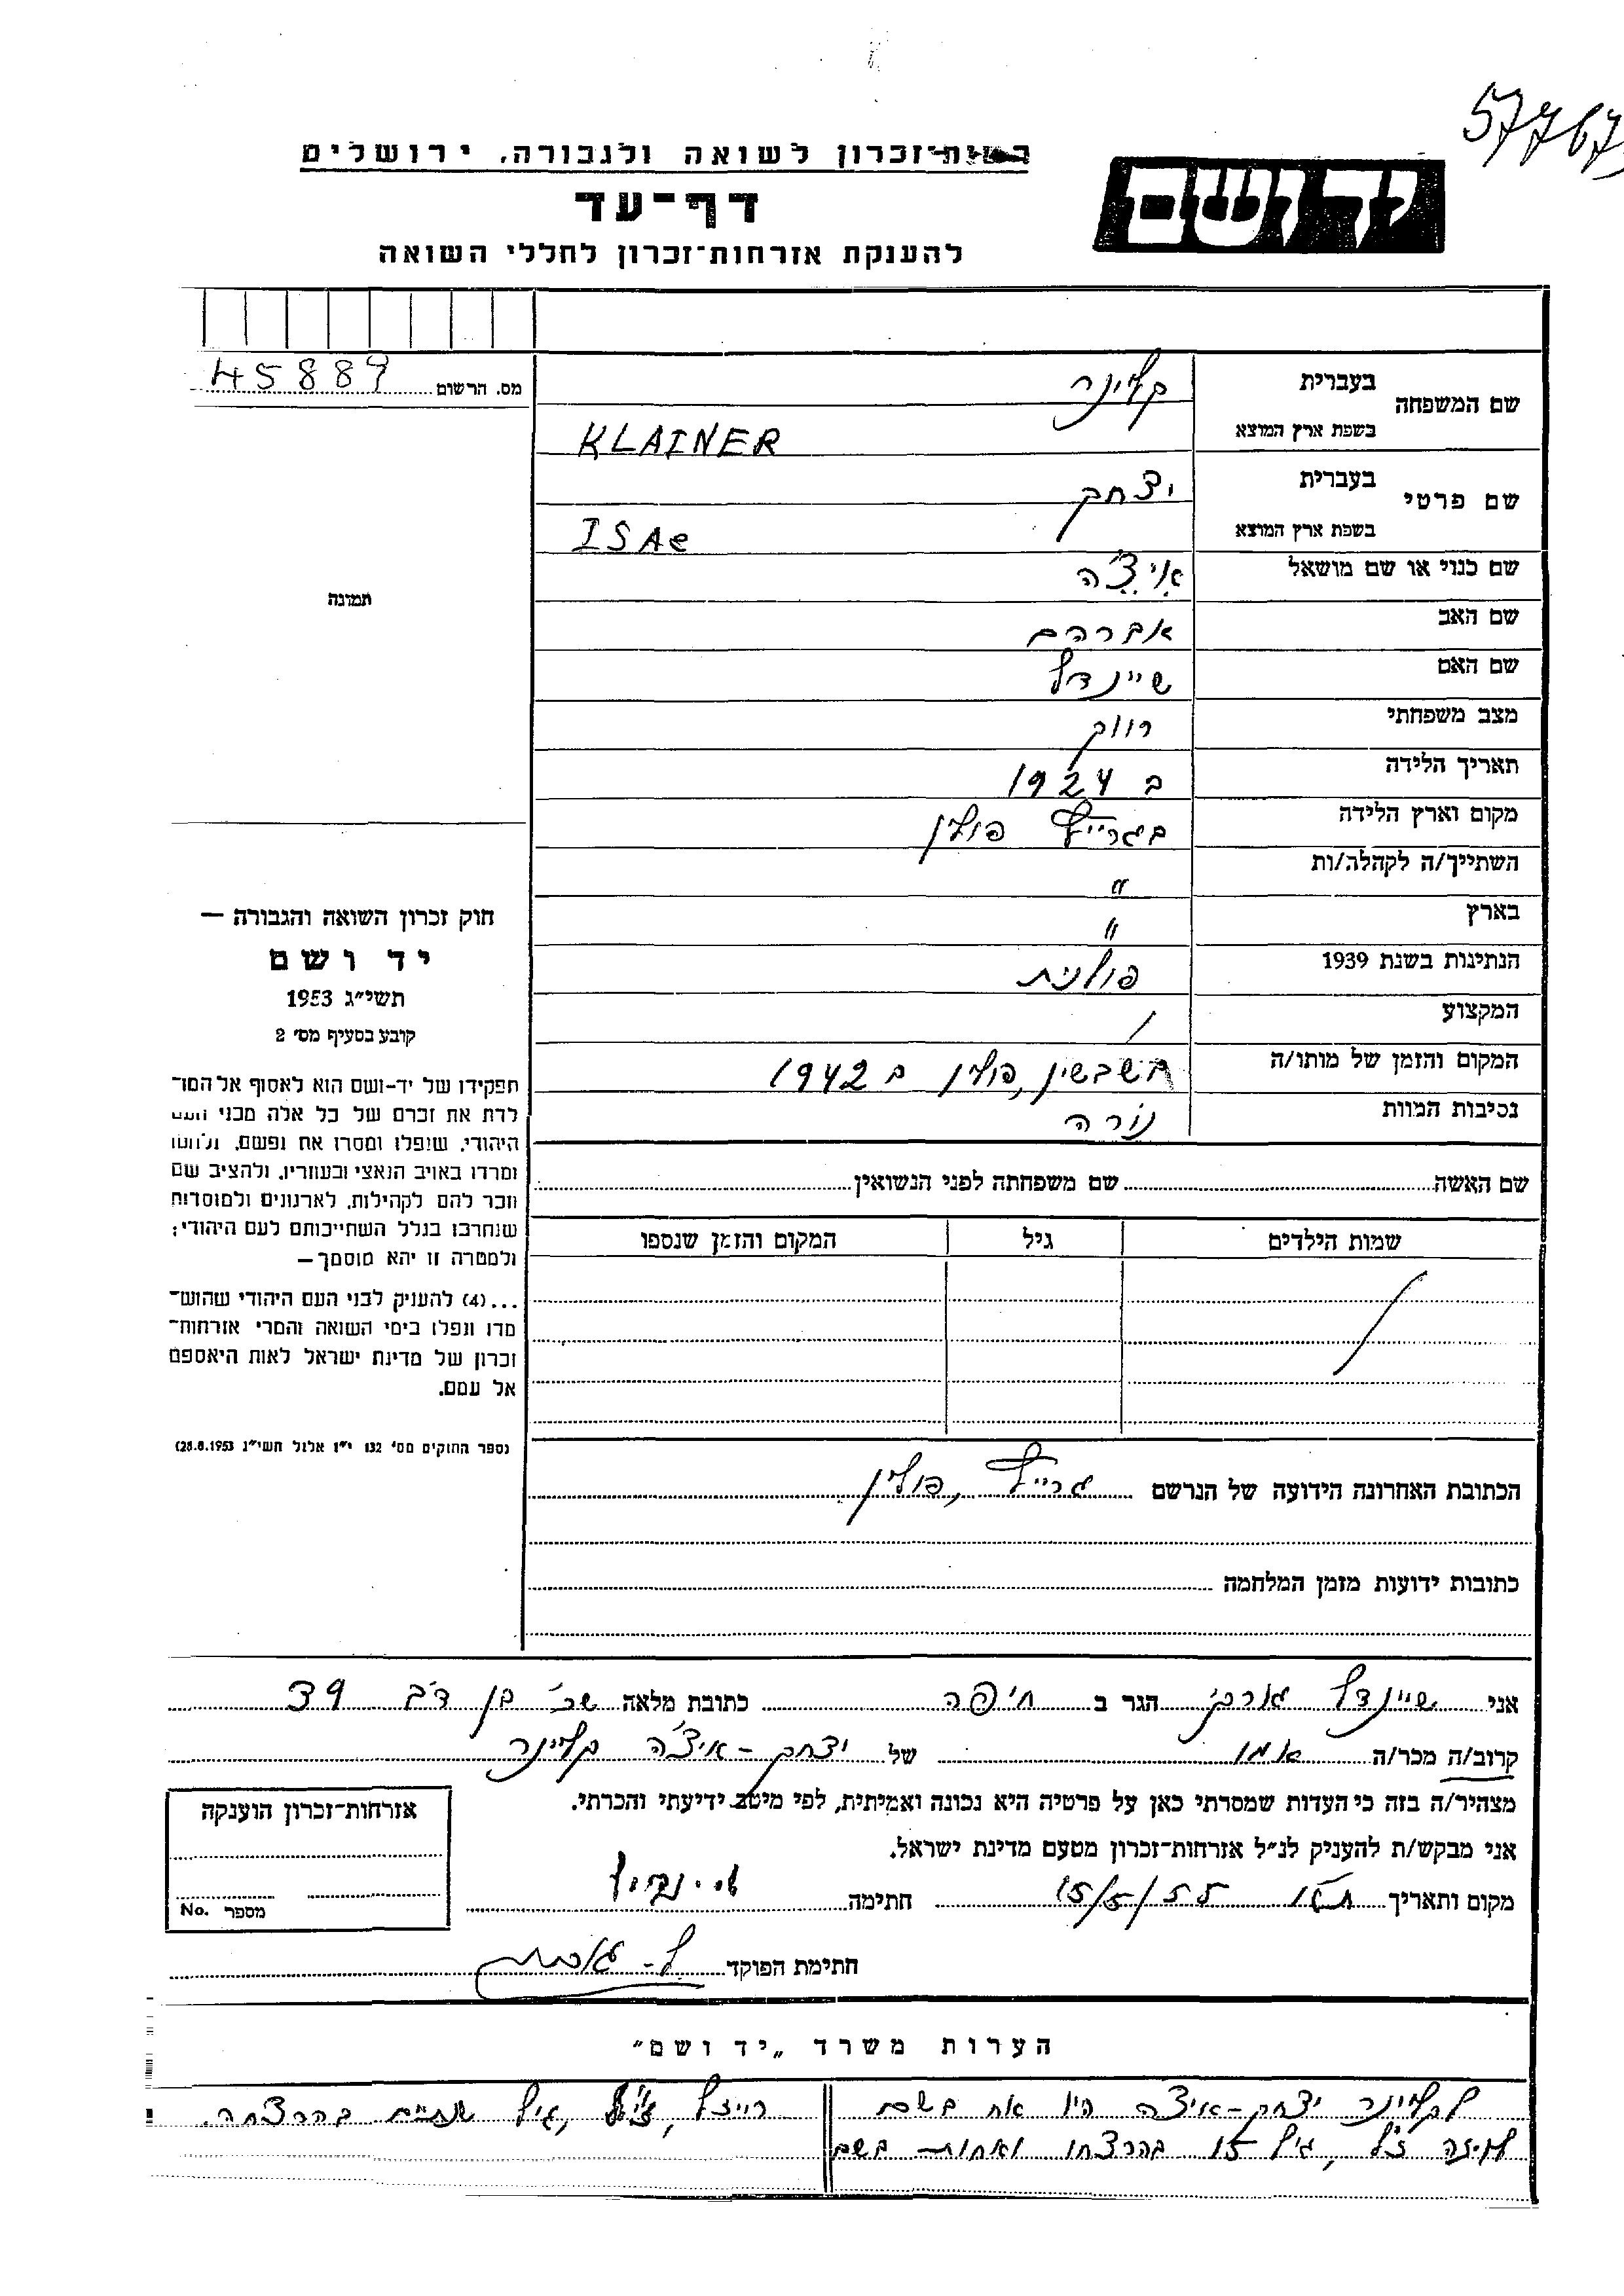 57767
רשות-זכרון לשואה ולגבורה, ירושלים
יד ושם
דף-עד
להענקת אזרחות-זכרון לחללי השואה
מס. הרשום 45889
שם המשפחה בעברית קליינר
בשפת ארץ המוצא KLAINER
שם פרטי בעברית יצחק
בשפת ארץ המוצא ISAC
שם כנוי או שם מושאל איצ'ה
שם האב אברהם
שם האם שיינדל
מצב משפחתי רווק
תאריך הלידה ב 1924
מקום וארץ הלידה פולין
השתייך/ה לקהלה/ות "
בארץ "
הנתינות בשנת 1939 פולנית
המקצוע /
המקום והזמן של מותו/ה פולין ב 1942
נסיבות המוות נורה
תמונה
חוק זכרון השואה והגבורה —
יד ושם
תשי"ג 1953
קובע בסעיף מס' 2
תפקידו של יד-ושם הוא לאסוף אל המו־
לדת את זכרם של כל אלה מבני העם
היהודי, שנפלו ומסרו את נפשם, נלחמו
ומרדו באויב הנאצי ובעוזריו, ולהציב שם
וזכר להם לקהילות, לארגונים ולמוסדות
שנחרבו בגלל השתייכותם לעם היהודי;
ולמטרה זו יהא מוסמך—
...(4) להעניק לבני העם היהודי שהוש־
מדו ונפלו בימי השואה והמרי אזרחות־
זכרון של מדינת ישראל לאות היאספם
אל עמם.
(ספר החוקים מס' 132 י"ז אלול תשי"ג 28.8.1953)
שם האשה שם משפחתה לפני הנשואין
שמות הילדים גיל המקום והזמן שנספו
הכתובת האחרונה הידועה של הנרשם , פולין
כתובות ידועות מזמן המלחמה
אני שיינדל הגר ב חיפה כתובת מלאה 39
קרוב/ה מכר/ה אמו של יצחק-איצ'ה קליינר
מצהיר/ה בזה כי העדות שמסרתי כאן על פרטיה היא נכונה ואמיתית, לפי מיטב ידיעתי והכרתי.
אני מבקש/ת להעניק לנ"ל אזרחות-זכרון מטעם מדינת ישראל.
מקום ותאריך 15/5/55 חתימה
חתימת הפוקד
אזרחות-זכרון הוענקה
מספר No.
הערות משרד „יד ושם"
לקליינר יצחק-איצ'ה היו אח בשם
ז"ל, גיל 15 בהרצחו ואחות בשם
רייזל, ז"ל, גיל שנתיים בהרצחה.